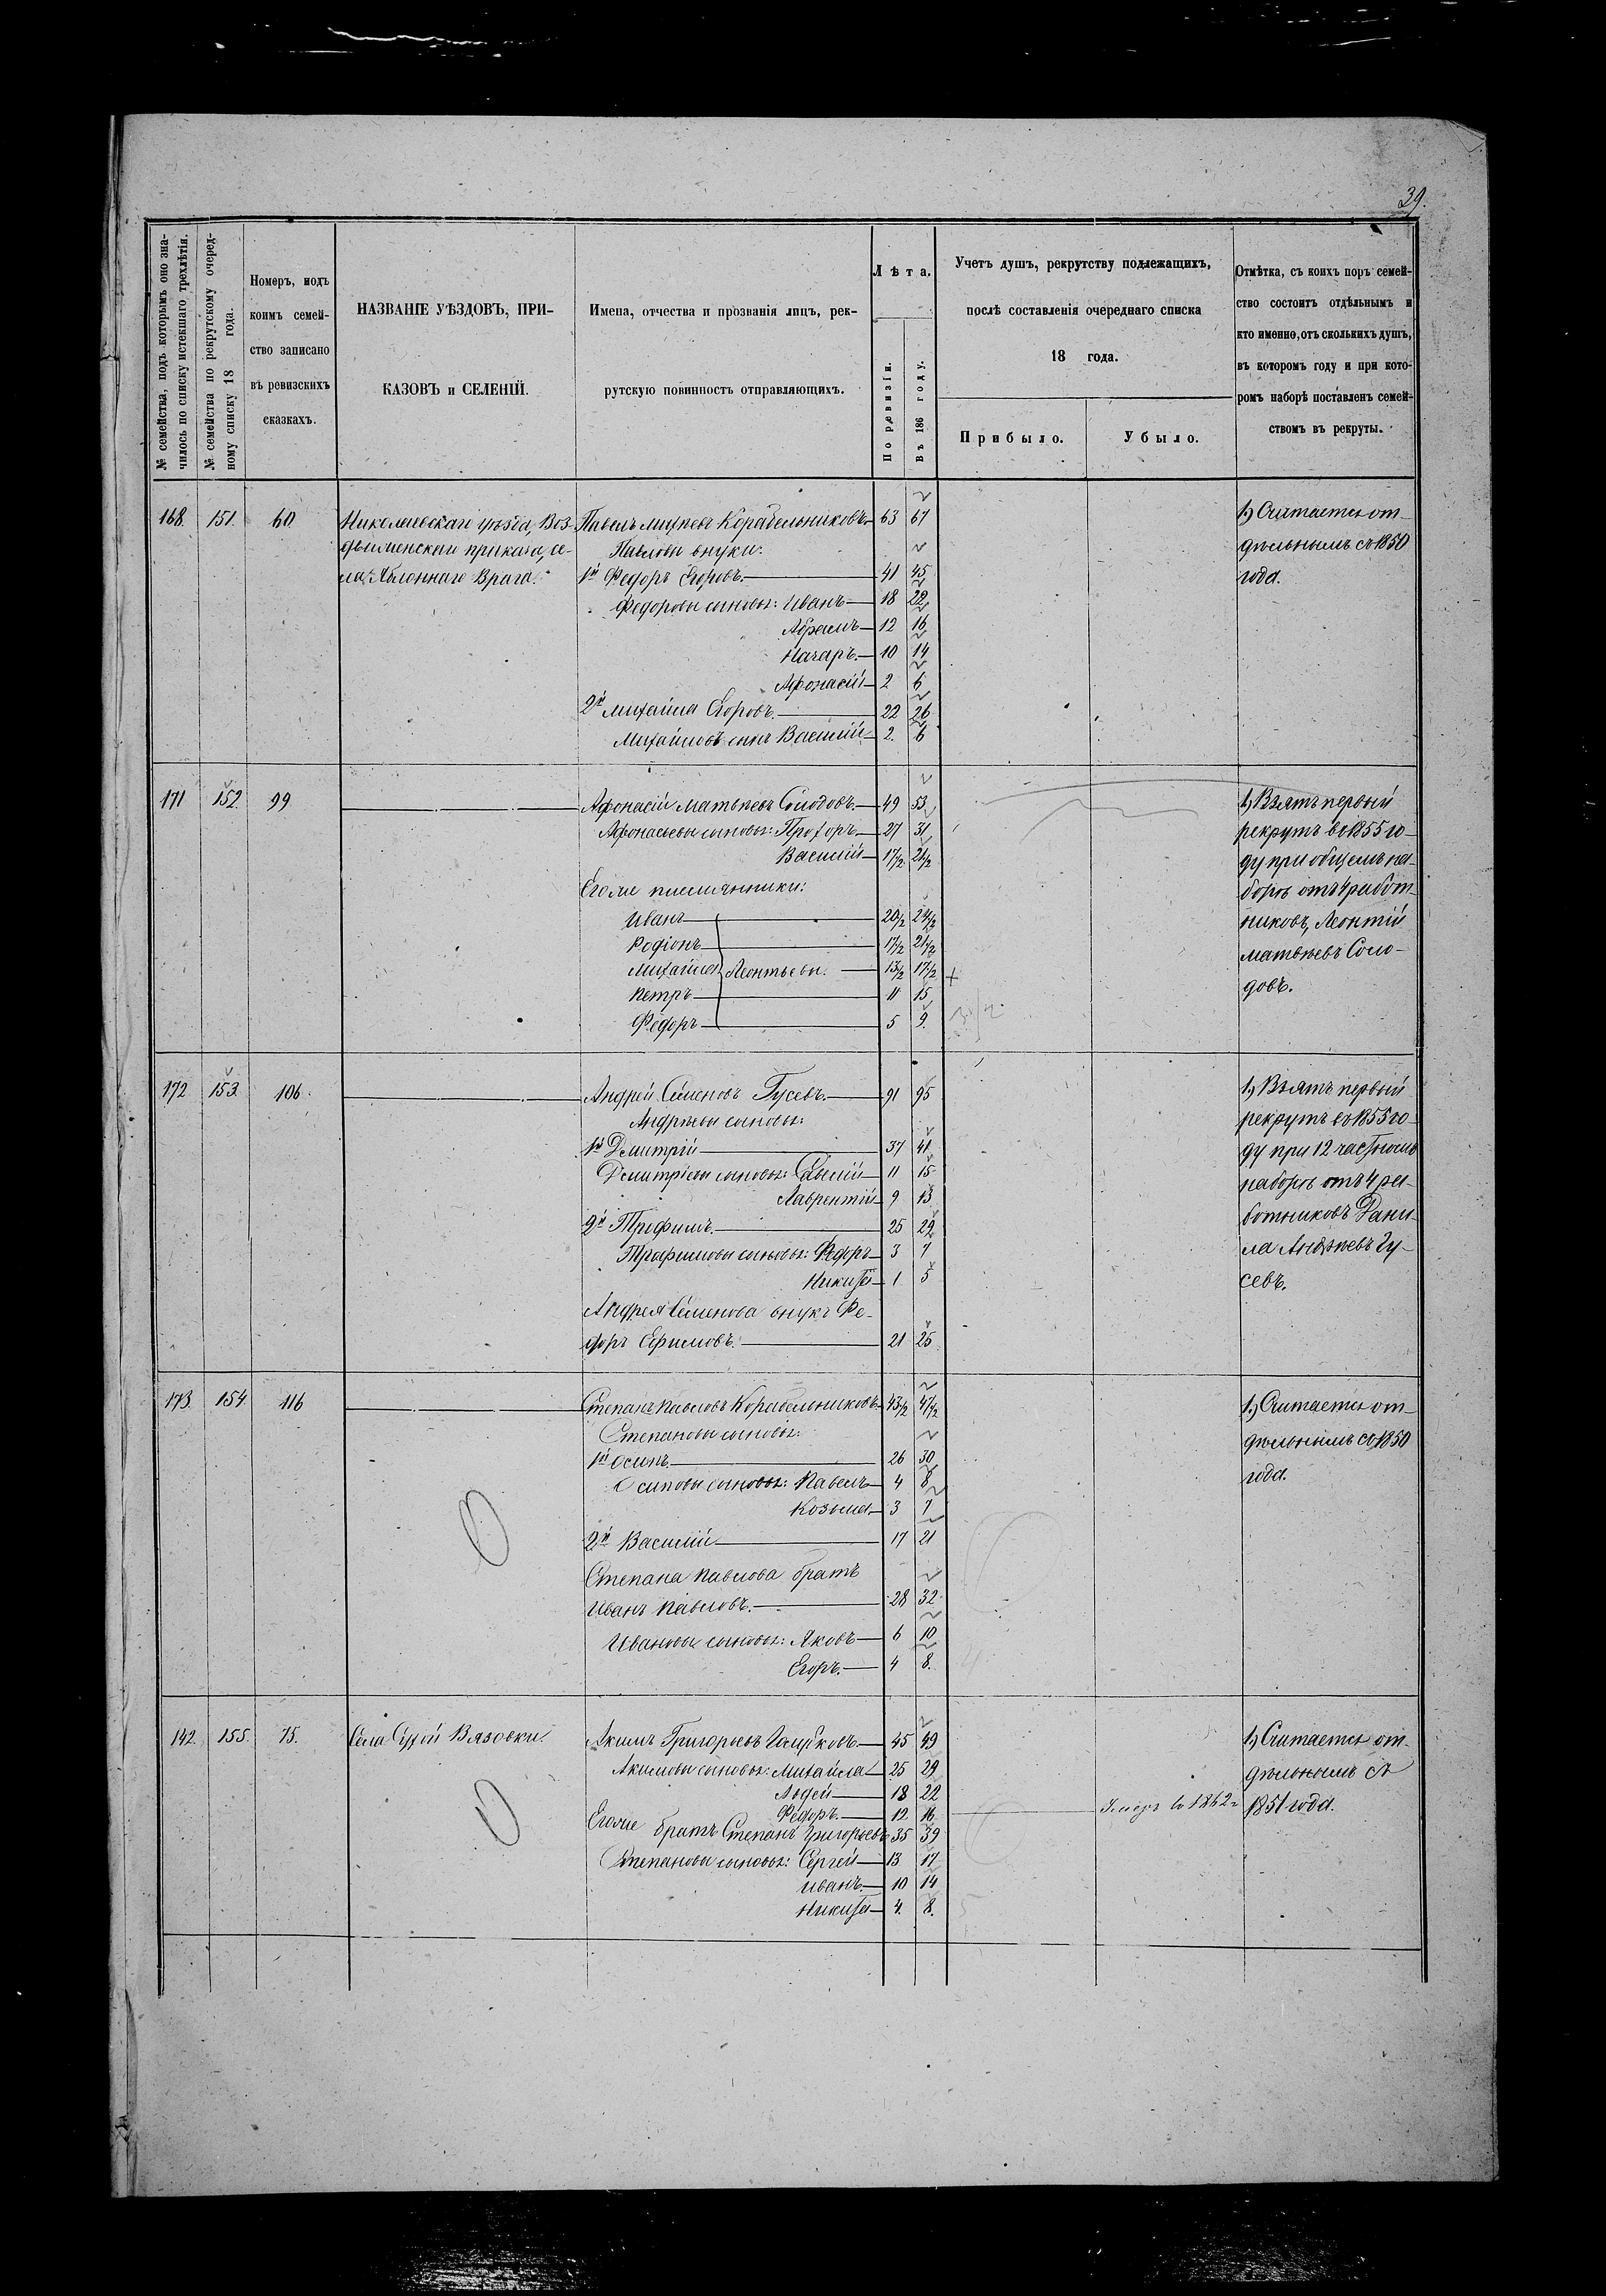 39.
№ семейства, подъ которымъ оно зна-
чилось по списку истекшаго трехлѣтія.
№ семейства по рекрутскому очеред-
ному списку 18 года.
Номеръ, подъ
коимъ семей-
ство записано
въ ревизскихъ
сказкахъ.
НАЗВАНІЕ УѢЗДОВЪ, ПРИ-
КАЗОВЪ и СЕЛЕНІЙ.
Имена, отчества и прозванія лицъ, рек-
рутскую повинность отправляющихъ.
Лѣта.
По ревизіи.
Въ 186 году.
Учетъ душъ, рекрутству подлежащихъ,
послѣ составленія очереднаго списка
18 года.
Прибыло.
Убыло.
Отмѣтка, съ коихъ поръ семей-
ство состоитъ отдѣльнымъ и
кто именно, отъ сколькихъ душъ,
въ которомъ году и при кото-
ромъ наборѣ поставленъ семей-
ствомъ въ рекруты.
168. 151. 60. Николаевскаго уѣзда, Воз- Павелъ Корабельниковъ 63 67
движенскаго приказа, се- Павловы внуки:
ла Яблоннаго Врага. 1й Федоръ Егоровъ. 41 45
Федоровы сыновья: Иванъ 18 22
Абрамъ 12 16
Назаръ. 10 14
Афонасій 2 6
2й Михайла Егоровъ. 22 26
Михайловъ сынъ Василій 2. 6
1) Считается от-
дѣльнымъ съ 1850
года.
171 152 99 Афонасій Матвѣевъ Солодовъ. 49 53
Афонасьевы сыновья: Прохоръ 27 31
Василій 17½ 21½
Егоже племянники:
Иванъ 20½ 24½
Родіонъ 17½ 21½
Михайла Леонтьевы. 13½ 17½ +
Петръ 11 15
Федоръ 5 9.
1) Взятъ первый
рекрутъ въ 1855 го-
ду при общемъ на-
борѣ отъ 4 работ-
никовъ, Леонтій
Матвѣевъ Соло-
довъ.
172 153. 106. Андрей Семеновъ Гусевъ. 91 95
Андреевы сыновья:
1й Дмитрій 37 41
Дмитріевы сыновья: 11 15
Лаврентій 9 13
2й Трофимъ. 25 29
Трофимовы сыновья: Федоръ 3 7
Никита 1 5
Андрея Семенова внукъ Фе-
доръ Ефимовъ. 21 25
1) Взятъ первый
рекрутъ въ 1855 го-
ду при 12 частномъ
наборѣ отъ 4 ра-
ботниковъ Дани-
ла Андреевъ Гу-
севъ.
173. 154 116 Степанъ Павловъ Корабельниковъ 43½ 47½
Степановы сыновья:
1й Осипъ 26 30
Осиповы сыновья: Павелъ 4 8
Козьма 3 7
2й Василій 17 21
Степана Павлова братъ
Иванъ Павловъ. 28 32
Ивановы сыновья: Яковъ 6 10
Егоръ. 4 8.
1) Считается от-
дѣльнымъ съ 1850
года.
142. 155. 75. Села Сухой Вязовки. Акимъ Григорьевъ 45 49
Акимовы сыновья: Михайла 25 29
Авдей 18 22
Федоръ. 12. 16. Умеръ въ 1862 г
Егоже братъ Степанъ Григорьевъ 35 39
Степановы сыновья: Сергей 13 17
Иванъ. 10 14
Никита 4. 8.
1) Считается от-
дѣльнымъ съ
1851 года.